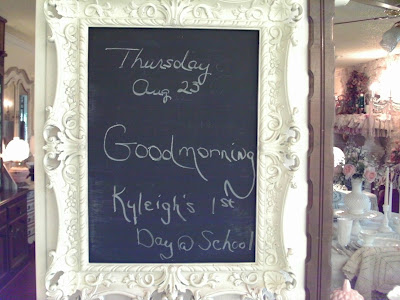 Thursday
Aug 23
Goodmorning
Kyleigh's 1st
Day @ School